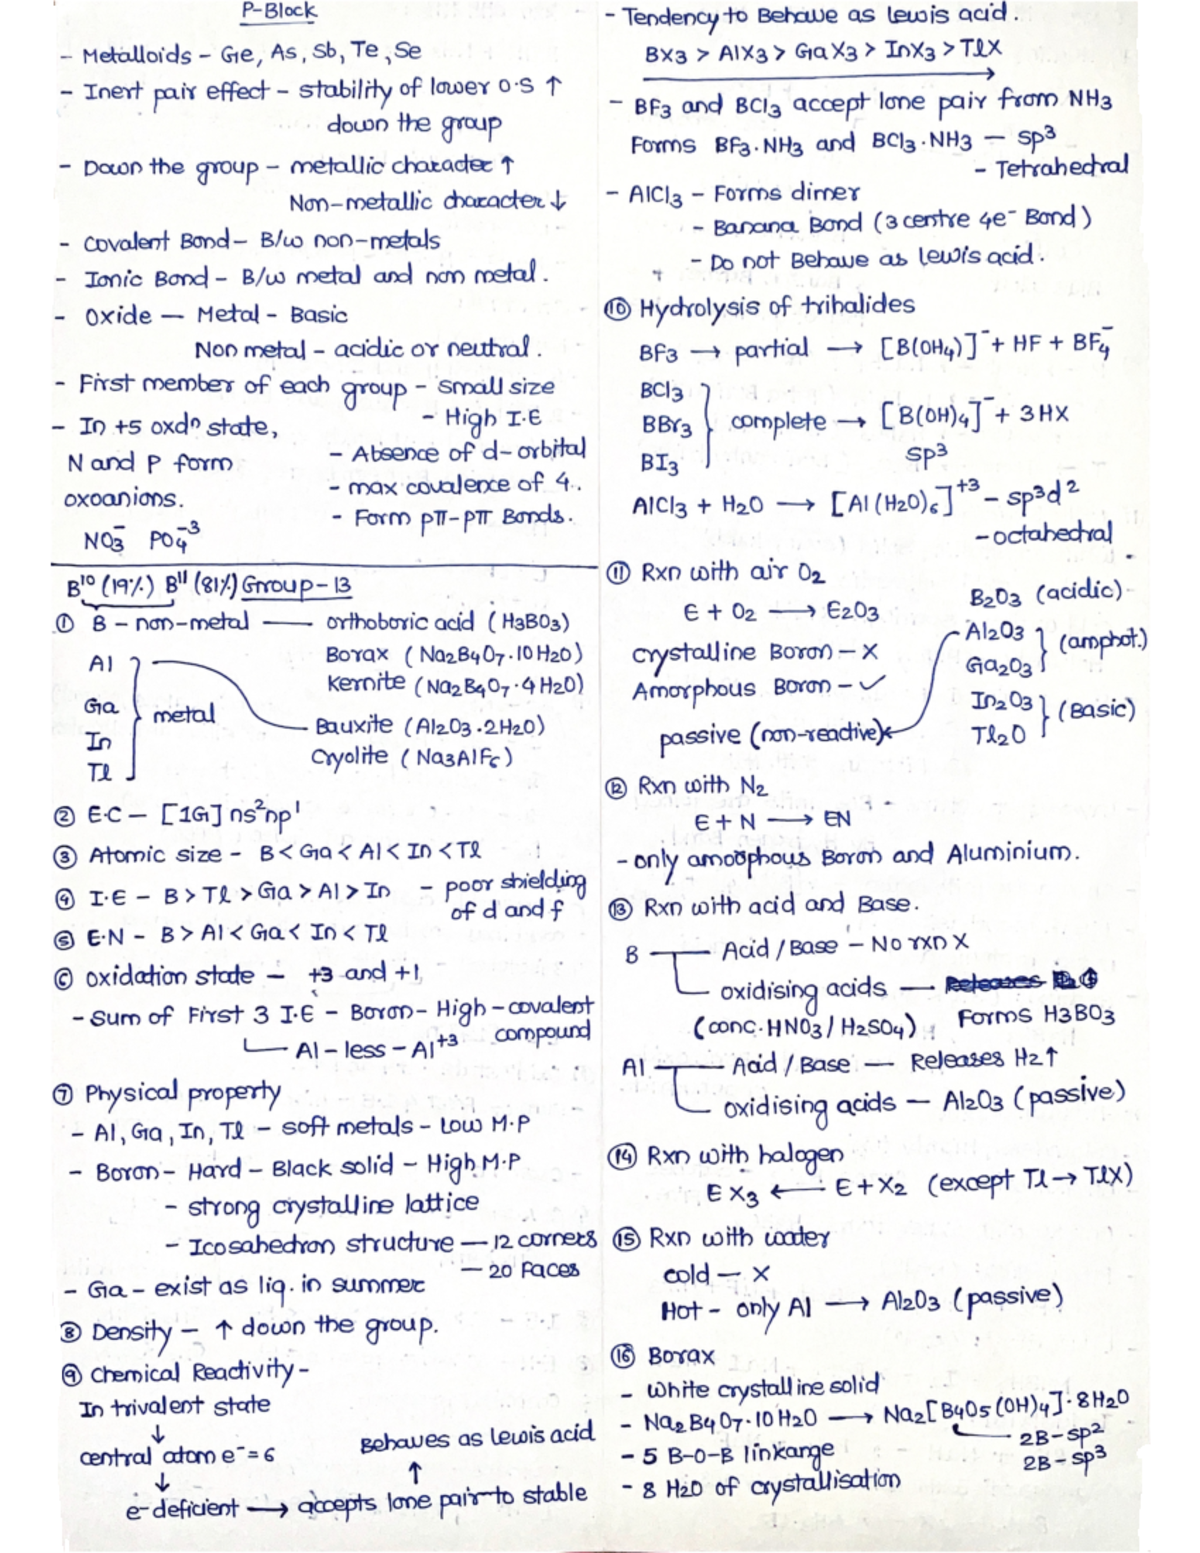 P-Block
- Metalloids - Ge, As, Sb, Te, Se
- Inert pair effect - stability of lower O.S ↑
down the group
- Down the group - metallic character ↑
Non-metallic character ↓
- Covalent Bond - B/w non-metals
- Ionic Bond - B/w metal and non metal.
- Oxide — Metal - Basic
Non metal - acidic or neutral.
- First member of each group - Small size
- High I.E
- Absence of d-orbital
- max covalence of 4.
- Form pπ-pπ Bonds.
- In +5 oxdⁿ state,
N and P form
oxoanions.
NO₃⁻ PO₄⁻³
B¹⁰ (19%) B¹¹ (81%) Group-13
① B - non-metal — orthoboric acid (H₃BO₃)
Borax (Na₂B₄O₇.10H₂O)
Kernite (Na₂B₄O₇.4H₂O)
Al
Ga
In
Tl
metal
Bauxite (Al₂O₃.2H₂O)
Cryolite (Na₃AlF₆)
② E.C — [IG] ns²np¹
③ Atomic size - B < Ga < Al < In < Tl
④ I.E - B > Tl > Ga > Al > In - poor shielding
of d and f
⑤ E.N - B > Al < Ga < In < Tl
⑥ oxidation state — +3 and +1
- Sum of First 3 I.E - Boron - High - covalent
compound
Al - less - Al⁺³
⑦ Physical property
- Al, Ga, In, Tl - soft metals - Low M.P
- Boron - Hard - Black solid - High M.P
- strong crystalline lattice
- Icosahedron structure — 12 corners
— 20 Faces
- Ga - exist as liq. in summer
⑧ Density - ↑ down the group.
⑨ Chemical Reactivity -
In trivalent state
↓
central atom e⁻ = 6
↓
e⁻ deficient → accepts lone pair to stable
↑
Behaves as lewis acid
- Tendency to Behave as lewis acid.
BX₃ > AlX₃ > GaX₃ > InX₃ > TlX
→
- BF₃ and BCl₃ accept lone pair from NH₃
Forms BF₃.NH₃ and BCl₃.NH₃ — sp³
- Tetrahedral
- AlCl₃ - Forms dimer
- Banana Bond (3 centre 4e⁻ Bond)
- Do not Behave as lewis acid.
⑩ Hydrolysis of trihalides
BF₃ → partial → [B(OH₄)]⁻ + HF + BF₄⁻
BCl₃
BBr₃
BI₃
complete → [B(OH)₄]⁻ + 3HX
sp³
AlCl₃ + H₂O → [Al(H₂O)₆]⁺³ - sp³d²
- octahedral
⑪ Rxn with air O₂
E + O₂ → E₂O₃
crystalline Boron - X
Amorphous Boron - ✓
passive (non-reactive)
B₂O₃ (acidic)
Al₂O₃
Ga₂O₃
(amphot.)
In₂O₃
Tl₂O
(Basic)
⑫ Rxn with N₂
E + N → EN
- only amorphous Boron and Aluminium.
⑬ Rxn with acid and Base.
B — Acid / Base - No rxn X
oxidising acids — Forms H₃BO₃
(conc. HNO₃ / H₂SO₄)
Al — Acid / Base — Releases H₂↑
oxidising acids — Al₂O₃ (passive)
⑭ Rxn with halogen
EX₃ ← E + X₂ (except Tl → TlX)
⑮ Rxn with water
cold — X
Hot - only Al → Al₂O₃ (passive)
⑯ Borax
- White crystalline solid
- Na₂B₄O₇.10H₂O → Na₂[B₄O₅(OH)₄].8H₂O
2B-sp²
2B-sp³
- 5 B-O-B linkange
- 8 H₂O of crystallisation